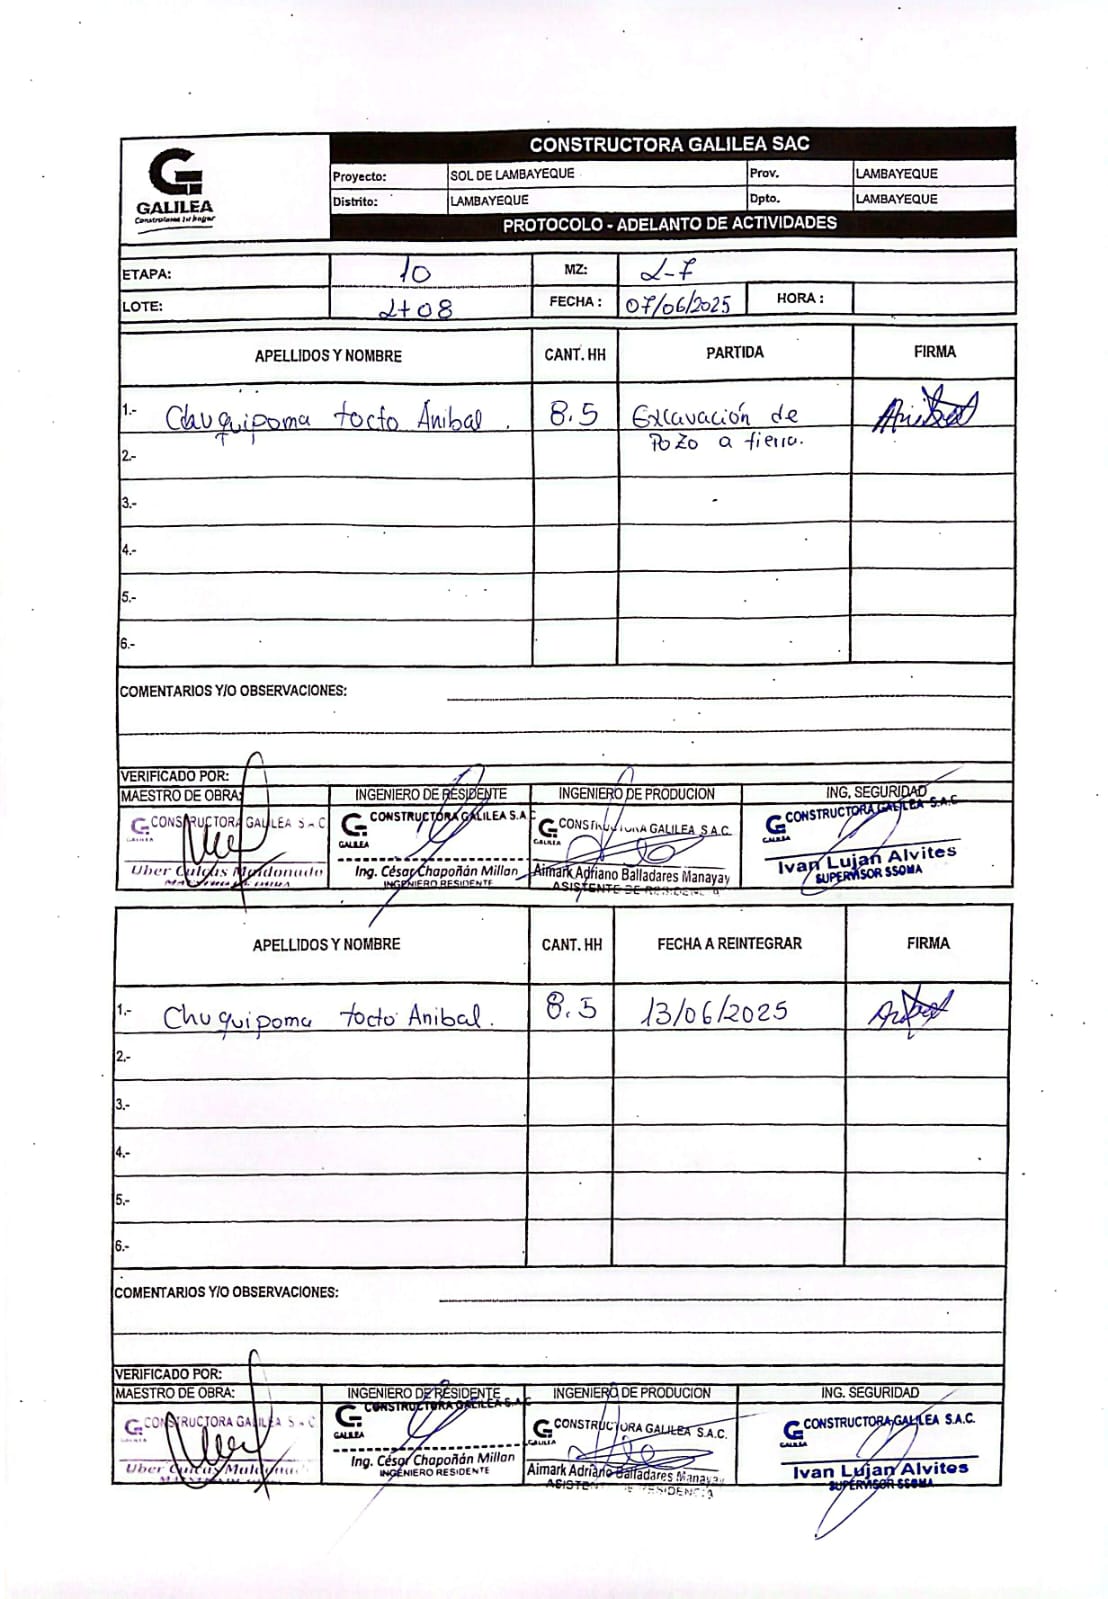 CONSTRUCTORA GALILEA SAC
GALILEA
Construimos tu hogar
Proyecto: SOL DE LAMBAYEQUE Prov. LAMBAYEQUE
Distrito: LAMBAYEQUE Dpto. LAMBAYEQUE
PROTOCOLO - ADELANTO DE ACTIVIDADES
ETAPA: 10 MZ: L-7
LOTE: Lt 08 FECHA : 07/06/2025 HORA :
APELLIDOS Y NOMBRE CANT. HH PARTIDA FIRMA
1.- Chuquipoma tocto Anibal. 8.5 Excavación de Anibal
Pozo a tierra.
2.-
3.-
4.-
5.-
6.-
COMENTARIOS Y/O OBSERVACIONES:
VERIFICADO POR:
MAESTRO DE OBRA: INGENIERO DE RESIDENTE INGENIERO DE PRODUCION ING. SEGURIDAD
CONSTRUCTORA GALILEA S.A.C CONSTRUCTORA GALILEA S.A.C CONSTRUCTORA GALILEA S.A.C. CONSTRUCTORA GALILEA S.A.C
GALILEA GALILEA GALILEA GALILEA
Uber Culcas Maldonado Ing. César Chapoñán Millan Aimark Adriano Balladares Manayay Ivan Lujan Alvites
MAESTRO DE OBRA INGENIERO RESIDENTE ASISTENTE DE RESIDENCIA SUPERVISOR SSOMA
APELLIDOS Y NOMBRE CANT. HH FECHA A REINTEGRAR FIRMA
1.- Chuquipoma tocto Anibal. 8.5 13/06/2025
2.-
3.-
4.-
5.-
6.-
COMENTARIOS Y/O OBSERVACIONES:
VERIFICADO POR:
MAESTRO DE OBRA: INGENIERO DE RESIDENTE INGENIERO DE PRODUCION ING. SEGURIDAD
CONSTRUCTORA GALILEA S.A.C CONSTRUCTORA GALILEA S.A.C CONSTRUCTORA GALILEA S.A.C. CONSTRUCTORA GALILEA S.A.C.
GALILEA GALILEA GALILEA GALILEA
Uber Culcas Maldonado Ing. César Chapoñán Millan Aimark Adriano Balladares Manayay Ivan Lujan Alvites
INGENIERO RESIDENTE ASISTENTE DE RESIDENCIA SUPERVISOR SSOMA